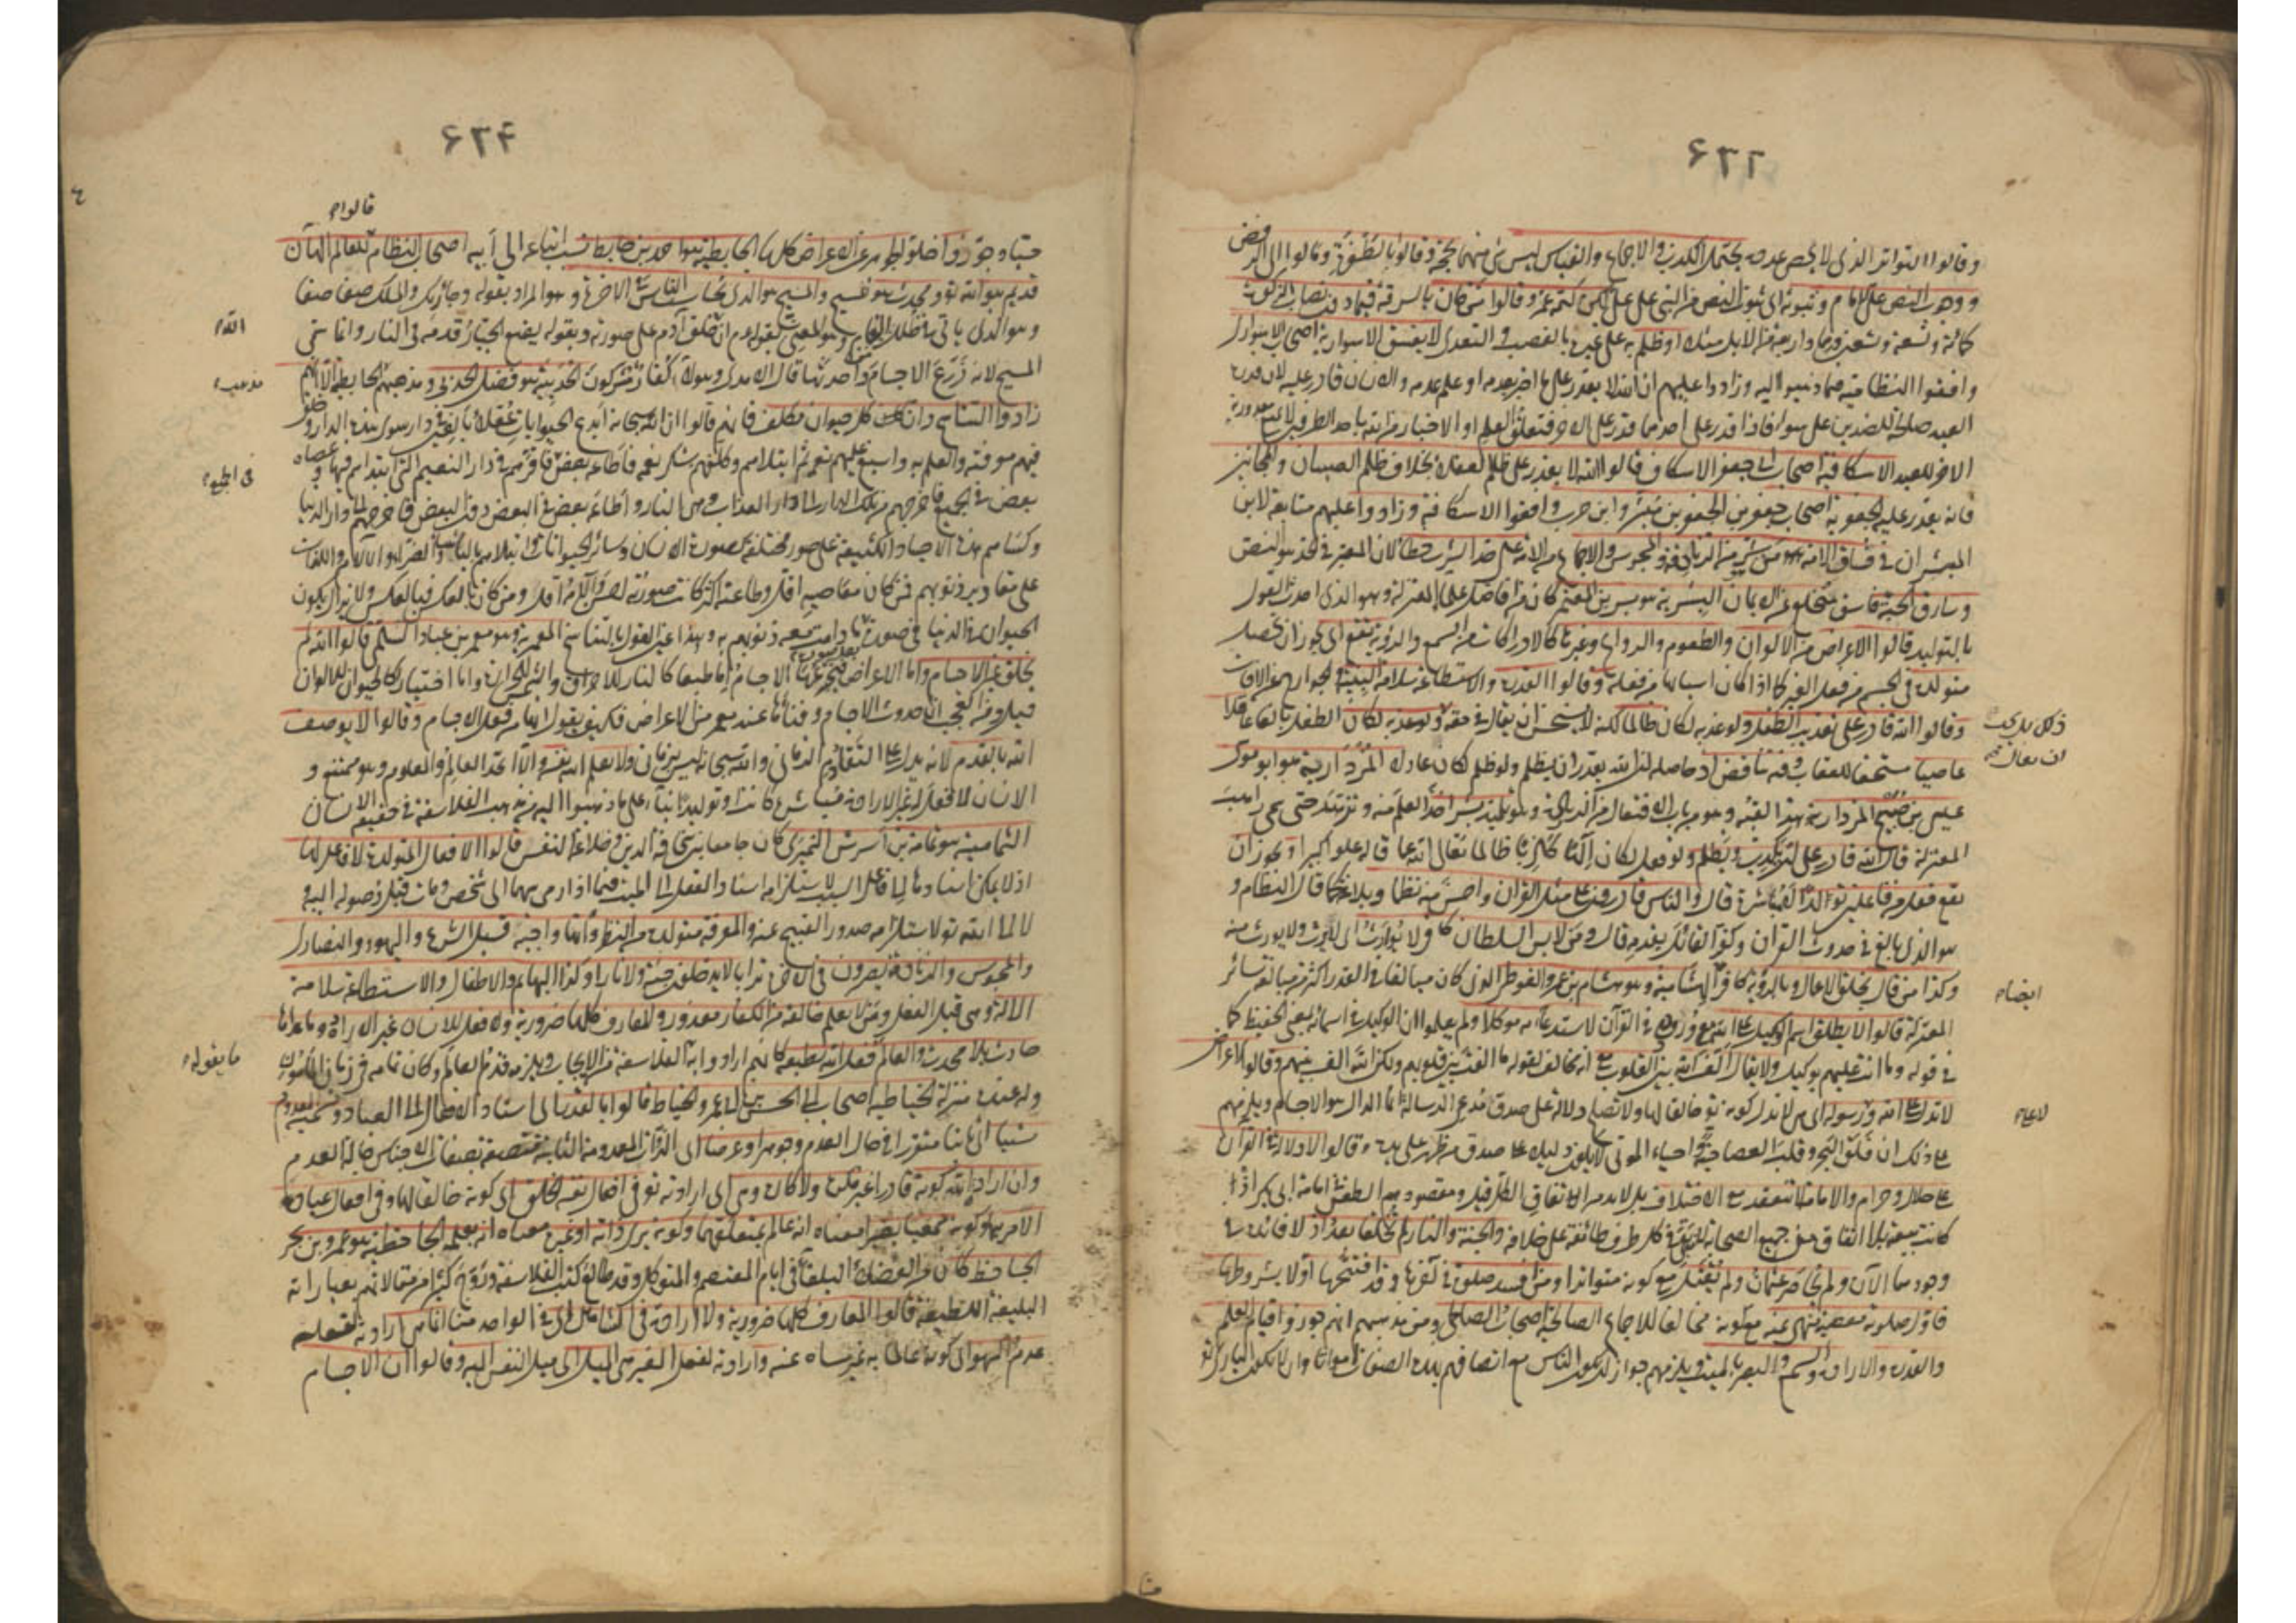 ٤٢٢
وقالوا التواتر الذي لا يحصى عدده يحتمل الكذب والاجماع والقياس ليس شئ منهما بحجة وقالوا بالطفرة ومالوا الى الرفض
ووجوب النص على الامام وثبوته اى ثبوت النص من النبى على على لكن كتمه عمر وقالوا من خان بالسرقة فيما دون نصاب الزكوة
كمائة وتسعة وتسعين درهما واربعة من الابل مثلا او ظلم به على غيره بالغصب والتعدى لا يفسق الاسوارية اصحاب الاسوارى
وافقوا النظامية فيما ذهبوا اليه وزادوا عليهم ان الله لا يقدر على ما اخبر بعدمه او علم عدمه والانسان قادر عليه لان قدرة
العبد صالحة للضدين على سواء فاذا قدر على احدهما قدر على الآخر فتعلق العلم او الاخبار من الله باحد الطرفين لا يمنع مقدورية
الآخر للعبد الاسكافية اصحاب ابى جعفر الاسكاف قالوا الله لا يقدر على ظلم العقلاء بخلاف ظلم الصبيان والمجانين
فانه يقدر عليه الجعفرية اصحاب جعفر بن الجعفرين مبشر وابن حرب وافقوا الاسكافية وزادوا عليهم متابعة لابن
المبشر ان فى فساق الامة من هو شر من الزنادقة والمجوس والاجماع من الامة على حد الشرب خطأ لان المعتبر فى الحد هو النص
وسارق الحبة فاسق منخلع عن الايمان البشرية هو بشر بن المعتمر كان من افاضل علماء المعتزلة وهو الذى احدث القول
بالتوليد قالوا الاعراض من الالوان والطعوم والروائح وغيرها كالادراكات من السمع والرؤية يقع اى يجوز ان يحصل
متولدة فى الجسم من فعل الغير كما اذا كان اسبابها من فعله وقالوا القدرة والاستطاعة سلامة البنية والجوارح عن الآفات
وقالوا الله قادر على تعذيب الطفل ولو عذبه لكان ظالما لكنه لا يستحسن ان يقال فى حقه ذلك بل يجب ان يقال ولو عذبه لكان الطفل بالغا عاقلا
عاصيا مستحقا للعقاب وفيه تناقض اذ حاصله ان الله يقدر ان يظلم ولو ظلم لكان عادلا المزدارية هو ابو موسى
عيسى بن صبيح المزدار هذا لقبه وهو من باب الافتعال من الزيارة وهو تلميذ بشر اخذ العلم منه وتزهد حتى سمى راهب
المعتزلة قال الله قادر على ان يكذب ويظلم ولو فعل لكان الها كاذبا ظالما تعالى الله عما قاله علوا كبيرا ويجوز ان
يقع فعل من فاعلين تولدا لا مباشرة قال والناس قادرون على مثل القرآن واحسن منه نظما وبلاغة كما قال النظام و
هو الذى بالغ فى حدوث القرآن وكفر القائل بقدمه قال ومن لابس السلطان كافر لا يوارث اى لا يرث ولا يورث منه
وكذا من قال بخلق الاعمال وبالرؤية كافر ايضا الهشامية هو هشام بن عمرو الفوطى الذى كان مبالغا فى القدر اكثر من مبالغة سائر
المعتزلة قالوا لا يطلق اسم الوكيل على الله مع وروده فى القرآن لاستدعائه موكلا ولم يعلموا ان الوكيل فى اسمائه بمعنى الحفيظ كما
فى قوله وما انت عليهم بوكيل ولا يقال الف الله بين القلوب مع انه مخالف لقوله ما الفت بين قلوبهم ولكن الله الف بينهم وقالوا الاعراض
لا تدل على الله ورسوله اى هى لا تدل على كونه تع خالقا لها ولا تصلح دلالة على صدق مدعى الرسالة انما الدال هو الاجسام ويلزمهم
على ذلك ان فلق البحر وقلب العصا حية واحياء الموتى لا يكون دليلا على صدق من ظهر على يده وقالوا لا دلالة فى القرآن
على حلال وحرام والامامة لا تنعقد مع الاختلاف بل لابد من الاتفاق الكل قيل ومقصودهم الطعن فى امامة ابى بكر اذا
كانت بيعته بلا اتفاق من جميع الصحابة لبقى فى كل طرف طائفة على خلافه والجنة والنار لم تخلقا بعد اذ لا فائدة فى
وجودهما الآن ولم يحاصر عثمان ولم يقتل مع كونه متواترا ومن افسد صلوته فى آخرها وقد افتتحها اولا بشروطها
فاول صلوته معصية منهى عنه مع كونه مخالفا للاجماع الصالحية اصحاب الصالحى ومن مذهبهم انهم جوزوا قيام العلم
والقدرة والارادة والسمع والبصر بالميت ويلزمهم جواز ان يكون الناس مع اتصافهم بهذه الصفات امواتا وان لا يكون البارى تع
ذلك بل يجب
ان يقال
ايضا
لا على
٤٢٣
قالوا
حيا وجوزوا خلو الجوهر عن الاعراض كلها الحابطية هو احمد بن حابط نسب اتباعه الى ابيه اصحاب النظام للعالم الهان
قديم هو الله تع ومحدث هو المسيح والمسيح هو الذى يحاسب الناس فى الآخرة وهو المراد بقوله وجاء ربك والملك صفا صفا
وهو الذى يأتى فى ظلل الغمام وهو المعنى بقوله عم ان الله خلق آدم على صورته وبقوله يضع الجبار قدمه فى النار وانما سمى
المسيح لانه ذرع الاجسام واحدثها قال الآمدى وهؤلاء كفار مشركون الحدبية هو فضل الحدبى ومذهبهم مذهب الحابطية الا انهم
زادوا التناسخ وان كل حيوان مكلف فانهم قالوا ان الله سبحانه ابدع الحيوانات عقلاء بالغين فى دار سوى هذه الدار وخلق
فيهم معرفته والعلم به واسبغ عليهم نعمه ثم ابتلاهم وكلفهم شكر نعمه فاطاعه بعض فاقرهم فى دار النعيم التى ابتدأهم فيها وعصاه
بعض فى الجميع فاخرجهم من تلك الدار الى دار العذاب وهى النار واطاعه بعض فى البعض دون البعض فاخرجهم الى دار الدنيا
وكساهم هذه الاجساد الكثيفة على صور مختلفة كصورة الانسان وسائر الحيوانات وابتلاهم بالبأساء والضراء والآلام واللذات
على مقادير ذنوبهم فمن كان معاصيه اقل وطاعته اكثر كانت صورته احسن وآلامه اقل ومن كان بالعكس فبالعكس ولا يزال يكون
الحيوان فى الدنيا فى صورة بعد صورة ما دامت معه ذنوبهم وهذا عين القول بالتناسخ المعمرية هو معمر بن عباد السلمى قالوا الله لم
يخلق غير الاجسام واما الاعراض فتخترعها الاجسام اما طبعا كالنار للاحراق والشمس للحرارة واما اختيارا كالحيوان للالوان
قيل ومن العجب ان حدوث الاجسام وفناءها عند معمر من الاعراض فكيف يقول انها من فعل الاجسام وقالوا لا يوصف
الله بالقدم لانه يدل على التقادم الزمانى والله سبحانه ليس بزمانى ولا يعلم الله نفسه والا اتحد العالم والمعلوم وهو ممتنع و
الانسان لا فعل له غير الارادة مباشرة كانت او توليدا بناء على ما ذهبوا اليه من مذهب الفلاسفة فى حقيقة الانسان
الثمامية هو ثمامة بن اشرس النميرى كان جامعا بين سخافة الدين وخلاعة النفس قالوا الافعال المتولدة لا فاعل لها
اذ لا يمكن اسنادها الى فاعل السبب لاستلزامه اسناد الفعل الى الميت فيما اذا رمى سهما الى شخص ومات قبل وصوله اليه و
لا الى الله تع لاستلزامه صدور القبيح عنه والمعرفة متولدة من النظر وانها واجبة قبل الشرع واليهود والنصارى
والمجوس والزنادقة يصيرون فى الآخرة ترابا لا يدخلون جنة ولا نارا وكذا البهائم والاطفال والاستطاعة سلامة
الآلة وهى قبل الفعل ومن لا يعلم خالقه من الكفار معذور والمعارف كلها ضرورية ولا فعل للانسان غير الارادة وما عداها
حادث بلا محدث والعالم فعل الله بطبعه كانهم ارادوا به ما يقوله الفلاسفة من الايجاب ويلزمه قدم العالم وكان ثمامة فى زمان المأمون
وله عنده منزلة الخياطية اصحاب ابى الحسين بن ابى عمرو الخياط قالوا بالقدر اى اسناد الافعال الى العباد وتسمية المعدوم
شيئا اى ثابتا متقررا فى حال العدم وجوهرا وعرضا اى الذوات المعدومة الثابتة متصفة بصفات الاجناس حالة العدم
وان ارادة الله كونه قادرا غير مكره ولا كاره وهى اى ارادته تع فى افعال نفسه الخلق اى كونه خالقا لها وفى افعال عباده
الامر بها وكونه سميعا بصيرا معناه انه عالم بمتعلقهما وكونه يرى ذاته او غيره معناه انه يعلمه الجاحظية هو عمرو بن بحر
الجاحظ كان من الفضلاء البلغاء فى ايام المعتصم والمتوكل وقد طالع كتب الفلاسفة وروج كثيرا من مقالاتهم بعباراته
البليغة اللطيفة قالوا المعارف كلها ضرورية ولا ارادة فى الشاهد اى فى الواحد منا انما هى ارادته لفعله
عدم السهو اى كونه عالما به غير ساه عنه وارادته لفعل الغير هى الميل اى ميل النفس اليه وقالوا ان الاجسام
الله
مذهب
فى الجميع
ما يقوله